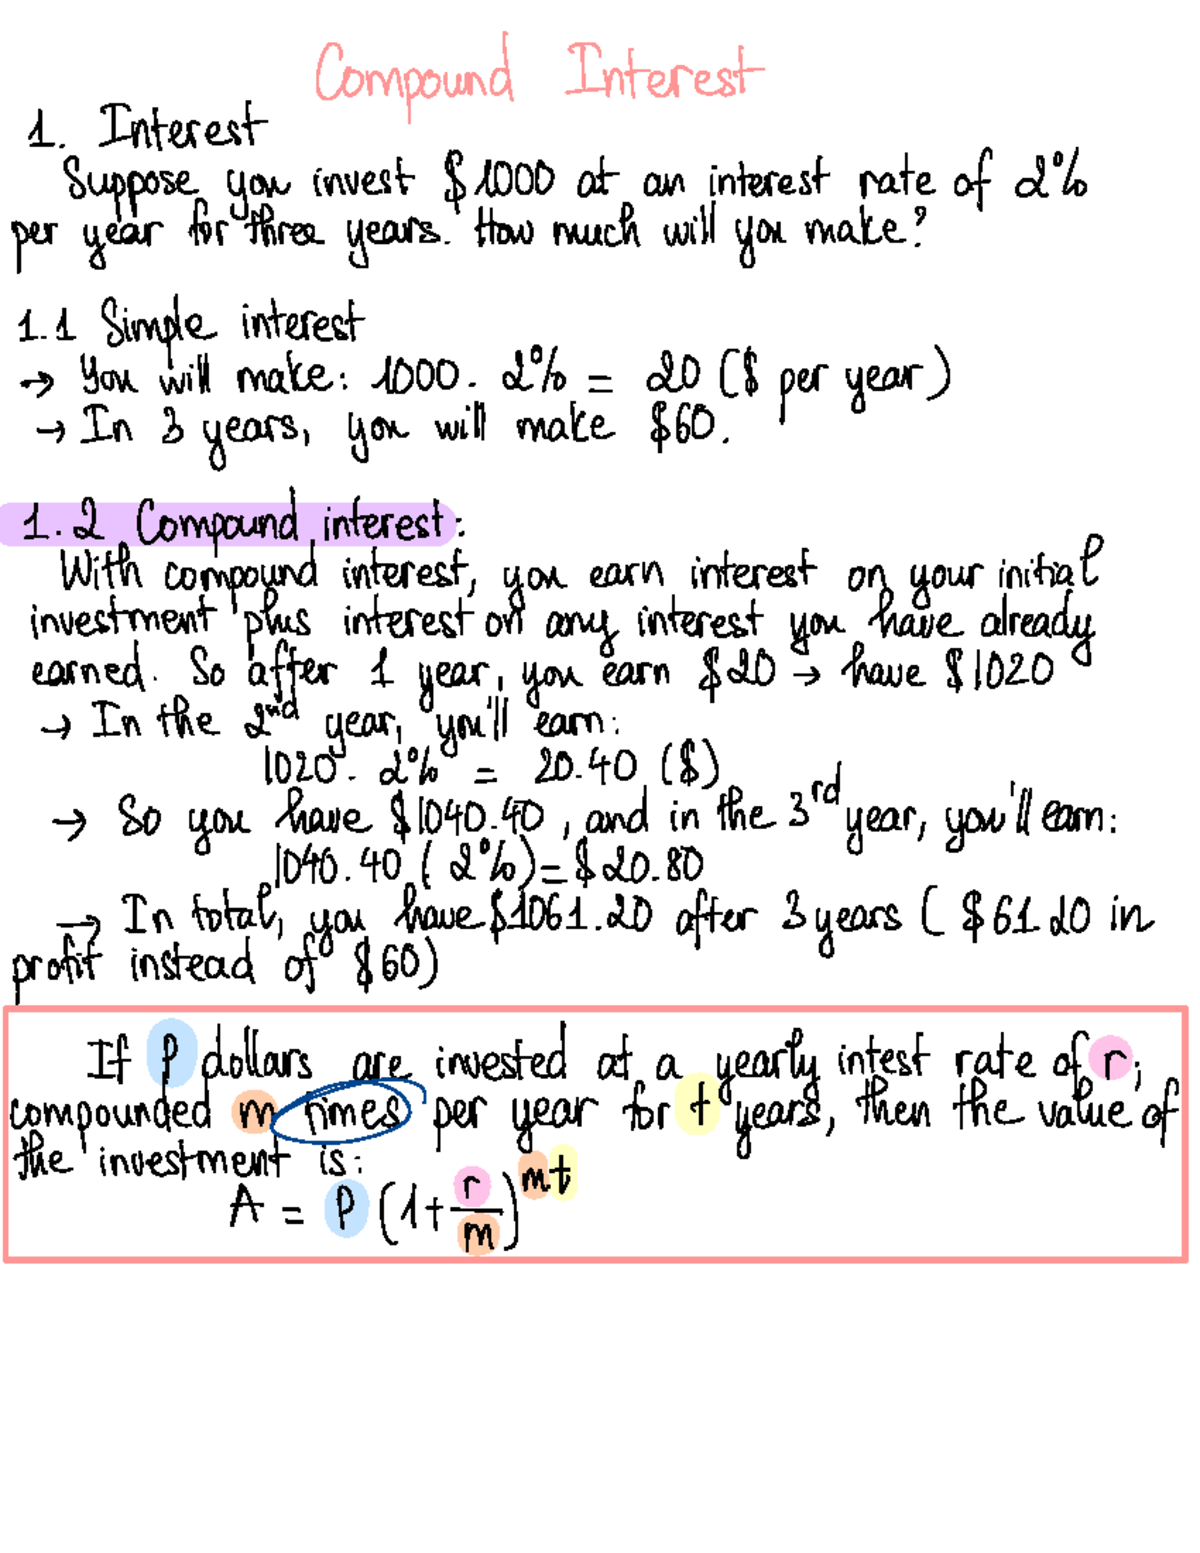 Compound Interest
1. Interest
Suppose you invest $1000 at an interest rate of 2%
per year for three years. How much will you make?
1.1 Simple interest
→ You will make: 1000. 2% = 20 ($ per year)
→ In 3 years, you will make $60.
1.2 Compound interest:
With compound interest, you earn interest on your initial
investment plus interest on any interest you have already
earned. So after 1 year, you earn $20 → have $1020
→ In the 2nd year, you'll earn:
1020. 2% = 20.40 ($)
→ So you have $1040.40, and in the 3rd year, you'll earn:
1040.40 (2%) = $20.80
→ In total, you have $1061.20 after 3 years ( $61.20 in
profit instead of $60)
If P dollars are invested at a yearly intest rate of r;
compounded m times per year for t years, then the value of
the investment is:
A = P (1+ r/m)^mt